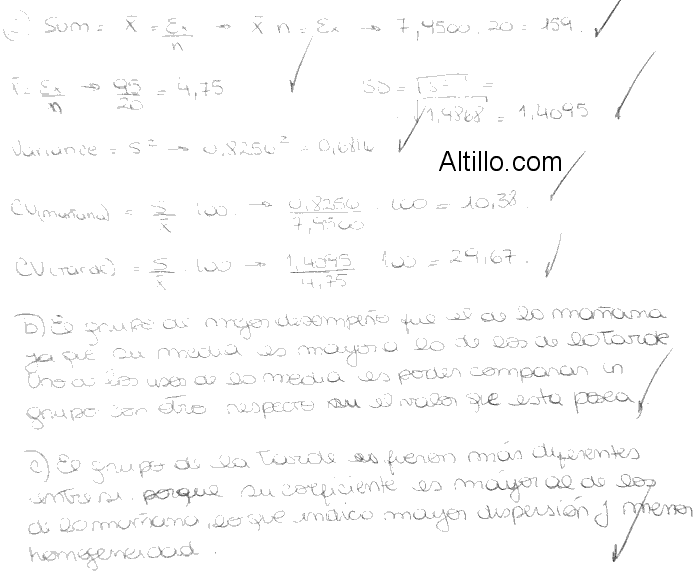 Sum = x̄ = Σx/n → x̄ n = Σx → 7,9500 . 20 = 159
x̄ = Σx/n → 95/20 = 4,75
SD = √S² =
√1,9868 = 1,4095
Variance = S² → 0,8256² = 0,6816
Altillo.com
CV(mañana) = S/x̄ . 100 . → 0,8256/7,9500 . 100 = 10,38.
CV(tarde) = S/x̄ . 100 → 1,4095/4,75 100 = 29,67.
b) El grupo de mejor desempeño que el de la mañana
ya que su media es mayor a la de los de la tarde
Uno de los usos de la media es poder comparar un
grupo con otro respecto al valor que esta posea.
c) El grupo de la tarde fueron más diferentes
entre si. porque su coeficiente es mayor al de los
de la mañana, lo que indica mayor dispersión y menor
homogeneidad.